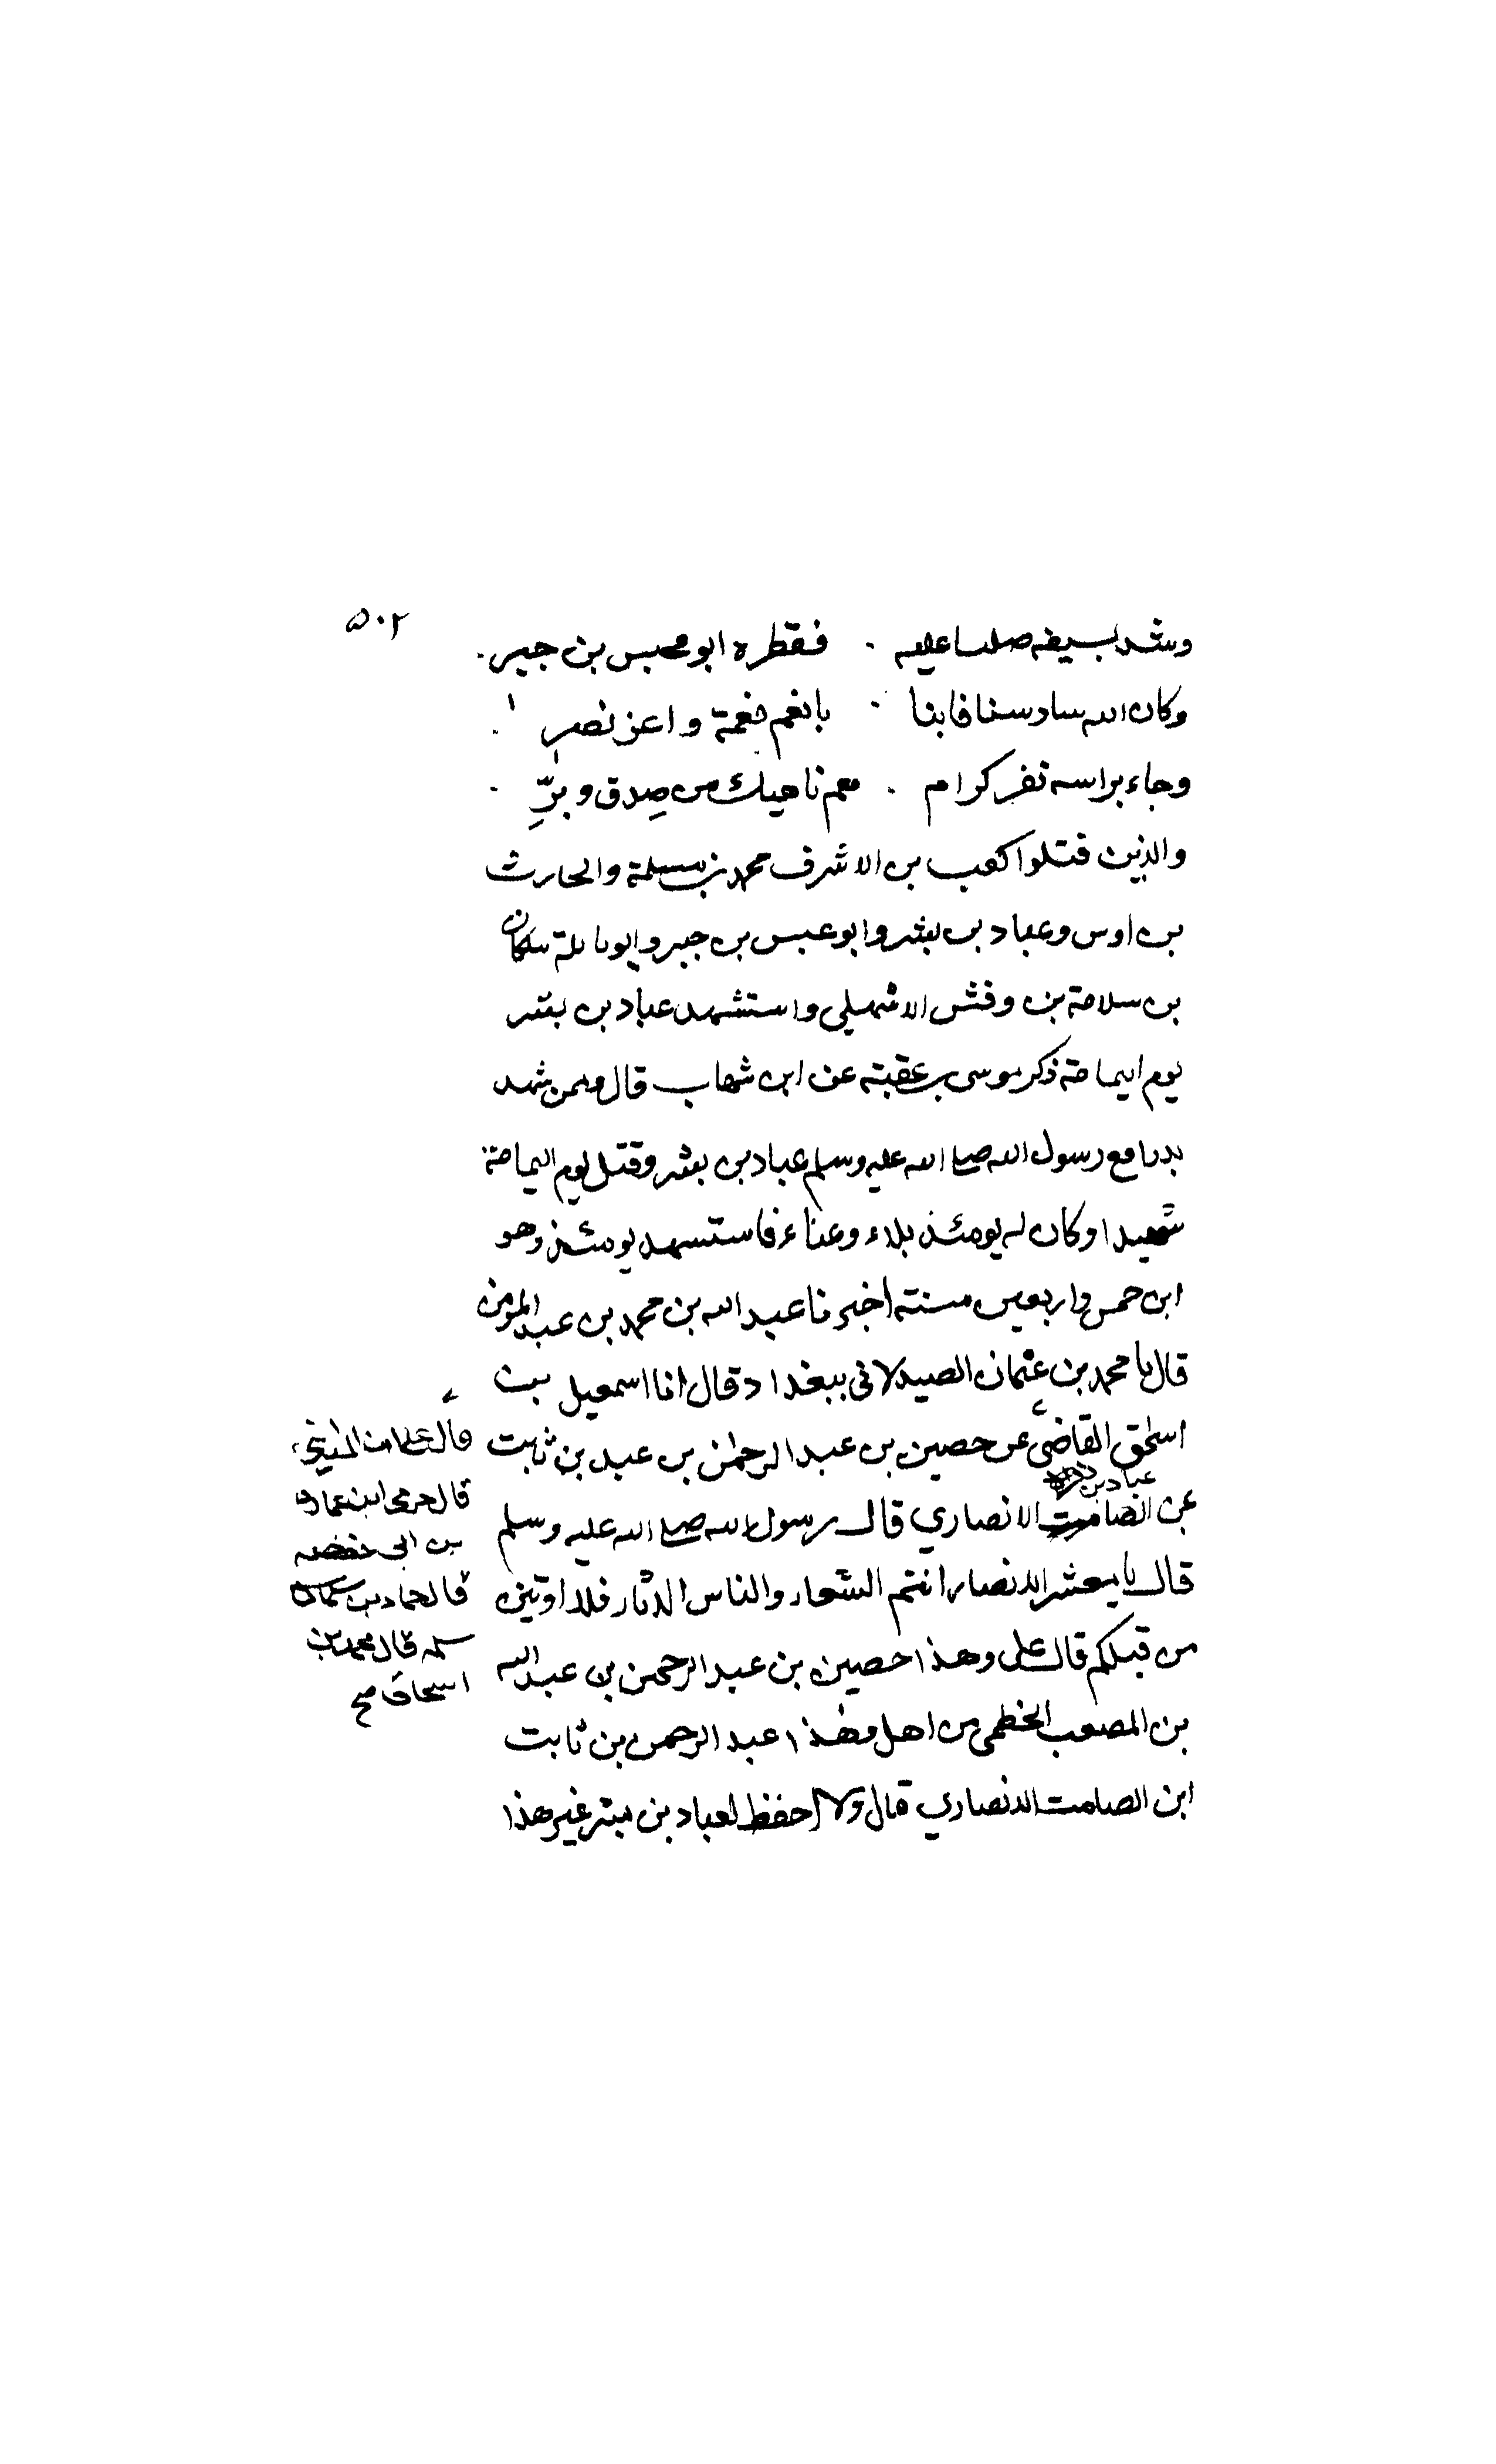 ٥٠٢
وشد بسيفه صلتا عليه . فقطره ابو عبس بن جبر .
وكان الله سادسنا فابنا . بانعم نعمة واعز نصر .
وجاء براسه نفر كرام . هم ناهيك من صِدق وبرِّ .
والذين قتلوا كعب بن الاشرف محمد بن مسلمة والحارث
بن اوس وعباد بن بشر وابو عبس بن جبر وابو نائلة سلكان
بن سلامة بن وقش الاشهلي واستشهد عباد بن بشر
يوم اليمامة ذكر موسى بن عقبة عن ابن شهاب قال وممن شهد
بدرا مع رسول الله صلى الله عليه وسلم عباد بن بشر وقتل يوم اليمامة
شهيدا وكان له يومئذ بلاء وعناء فاستشهد يومئذ وهو
ابن خمس واربعين سنة اخبرنا عبد الله بن محمد بن عبد المومن
قال نا محمد بن عثمان الصيدلانى ببغداد قال انا اسمعيل بن
اسحق القاضى عن حصين بن عبد الرحمن بن عبد بن ثابت
عباد بن
عن الصامت الانصاري قال رسول الله صلى الله عليه وسلم
قال يا معشر الانصار انتم الشعار والناس الدثار فلا اوتين
من قبلكم قال على وهذا حصين بن عبد الرحمن بن عبد الله
بن المصعب الخطمى من اهل وهذا عبد الرحمن بن ثابت
ابن الصامت الانصاري قال ولا احفظ لعباد بن بشر غير هذا
قال على بن المدينى
قال حرمى ابن عمارة
بن ابى حفصه
قال حماد بن
سلمه قال محمد بن
اسحاق صح